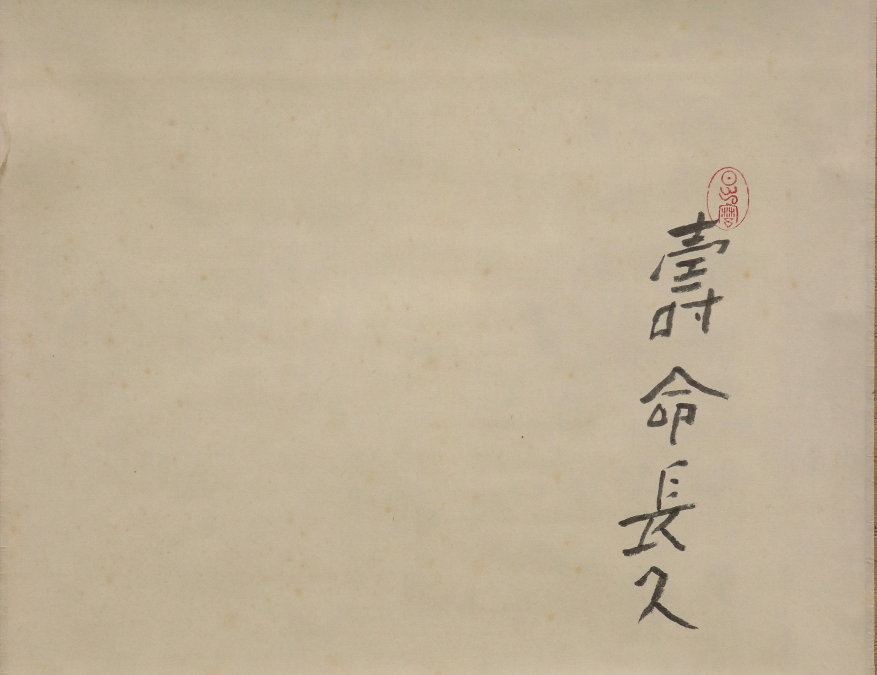 壽命長久